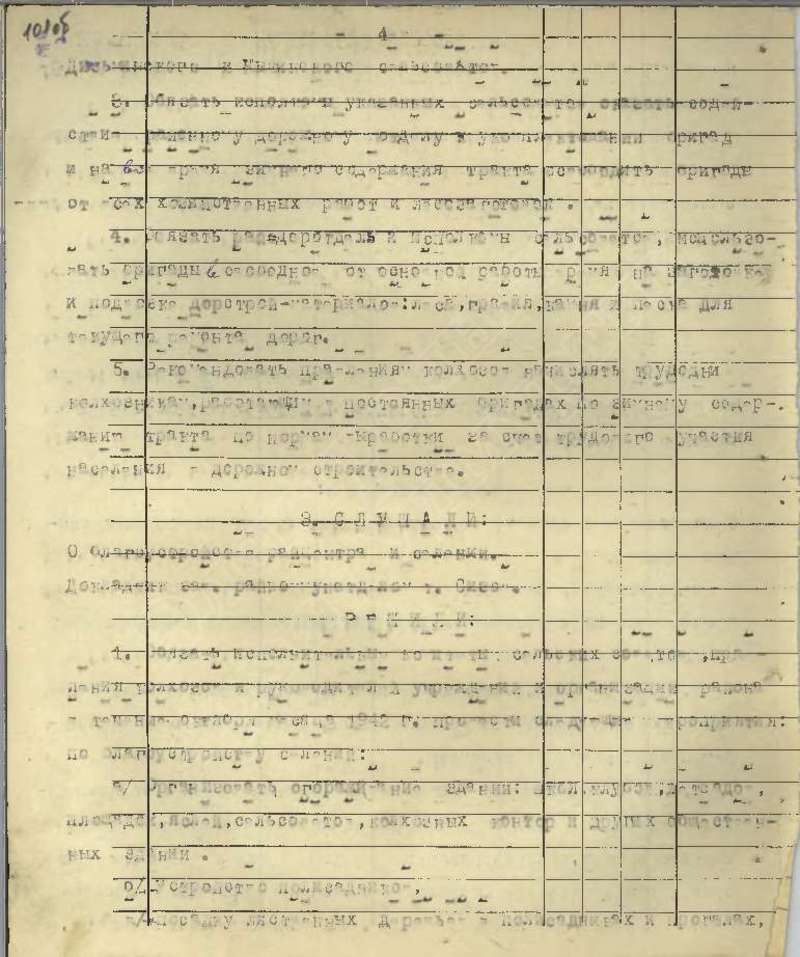 - 4 -
и сельсоветов.
3. Обязать исполкомы указанных сельсоветов оказать содей-
дорожному отделу в укомплектовании бригад
и на все время зимнего содержания тракта освободить бригады
от всех хозяйственных работ и лесозаготовок.
4. Обязать райдоротдель и исполкомы сельсоветов, использо-
вать бригады в свободное от основной работы время на заготовке
и подвозке дорстройматериалов: леса, гравия, камня и песка для
текущего ремонта дорог.
5. Рекомендовать правлениям колхозов начислять трудодни
колхозникам, работающим в постоянных бригадах по зимнему содер-
жанию тракта по нормам выработки за счет трудового участия
населения в дорожном строительстве.
9. С Л У Ш А Л И:
О благоустройстве райцентра и селений.
Докладчик зав. т.
Р Е Ш И Л И:
1. Обязать исполнительные комитеты сельских советов, прав-
ления колхозов и руководителей учреждений и организаций района
в течение октября месяца 1942 г. провести следующие мероприятия:
по благоустройству селений:
а/ Организовать огораживание зданий: школ, клубов, детсадов,
площадей, яслей, сельсоветов, колхозных контор и других обществен-
ных зданий.
б/ Устройство полисадников,
в/ Посадку лиственных деревьев в полисадниках и